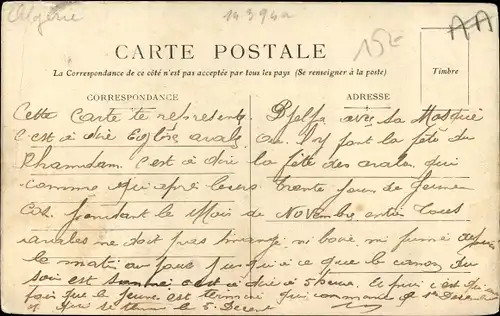 Algérie
14.3.94a
15E
AA
CARTE POSTALE
La Correspondance de ce côté n'est pas acceptée par tous les pays (Se renseigner à la poste)
Timbre
CORRESPONDANCE
ADRESSE
Cette Carte te represente Djelfa avec sa Mosqué
c'est a dire Eglise arabe ou l'on font la fête du
Rhamdam c'est à dire la fête des arabe qui
comme apré leurs trente jour de jeune
car pendant le Mois de Novembre entre tous
arabes ne doit pas mangé ni boire ni fumé depuis
le matin au jour jusqu'à ce que le canon du
soir est sonné c'est a dire a 5 heure et puis c'est
fois que le jeune est terminé qui commence 1er Decembre
qui se termine le 5 Decembre